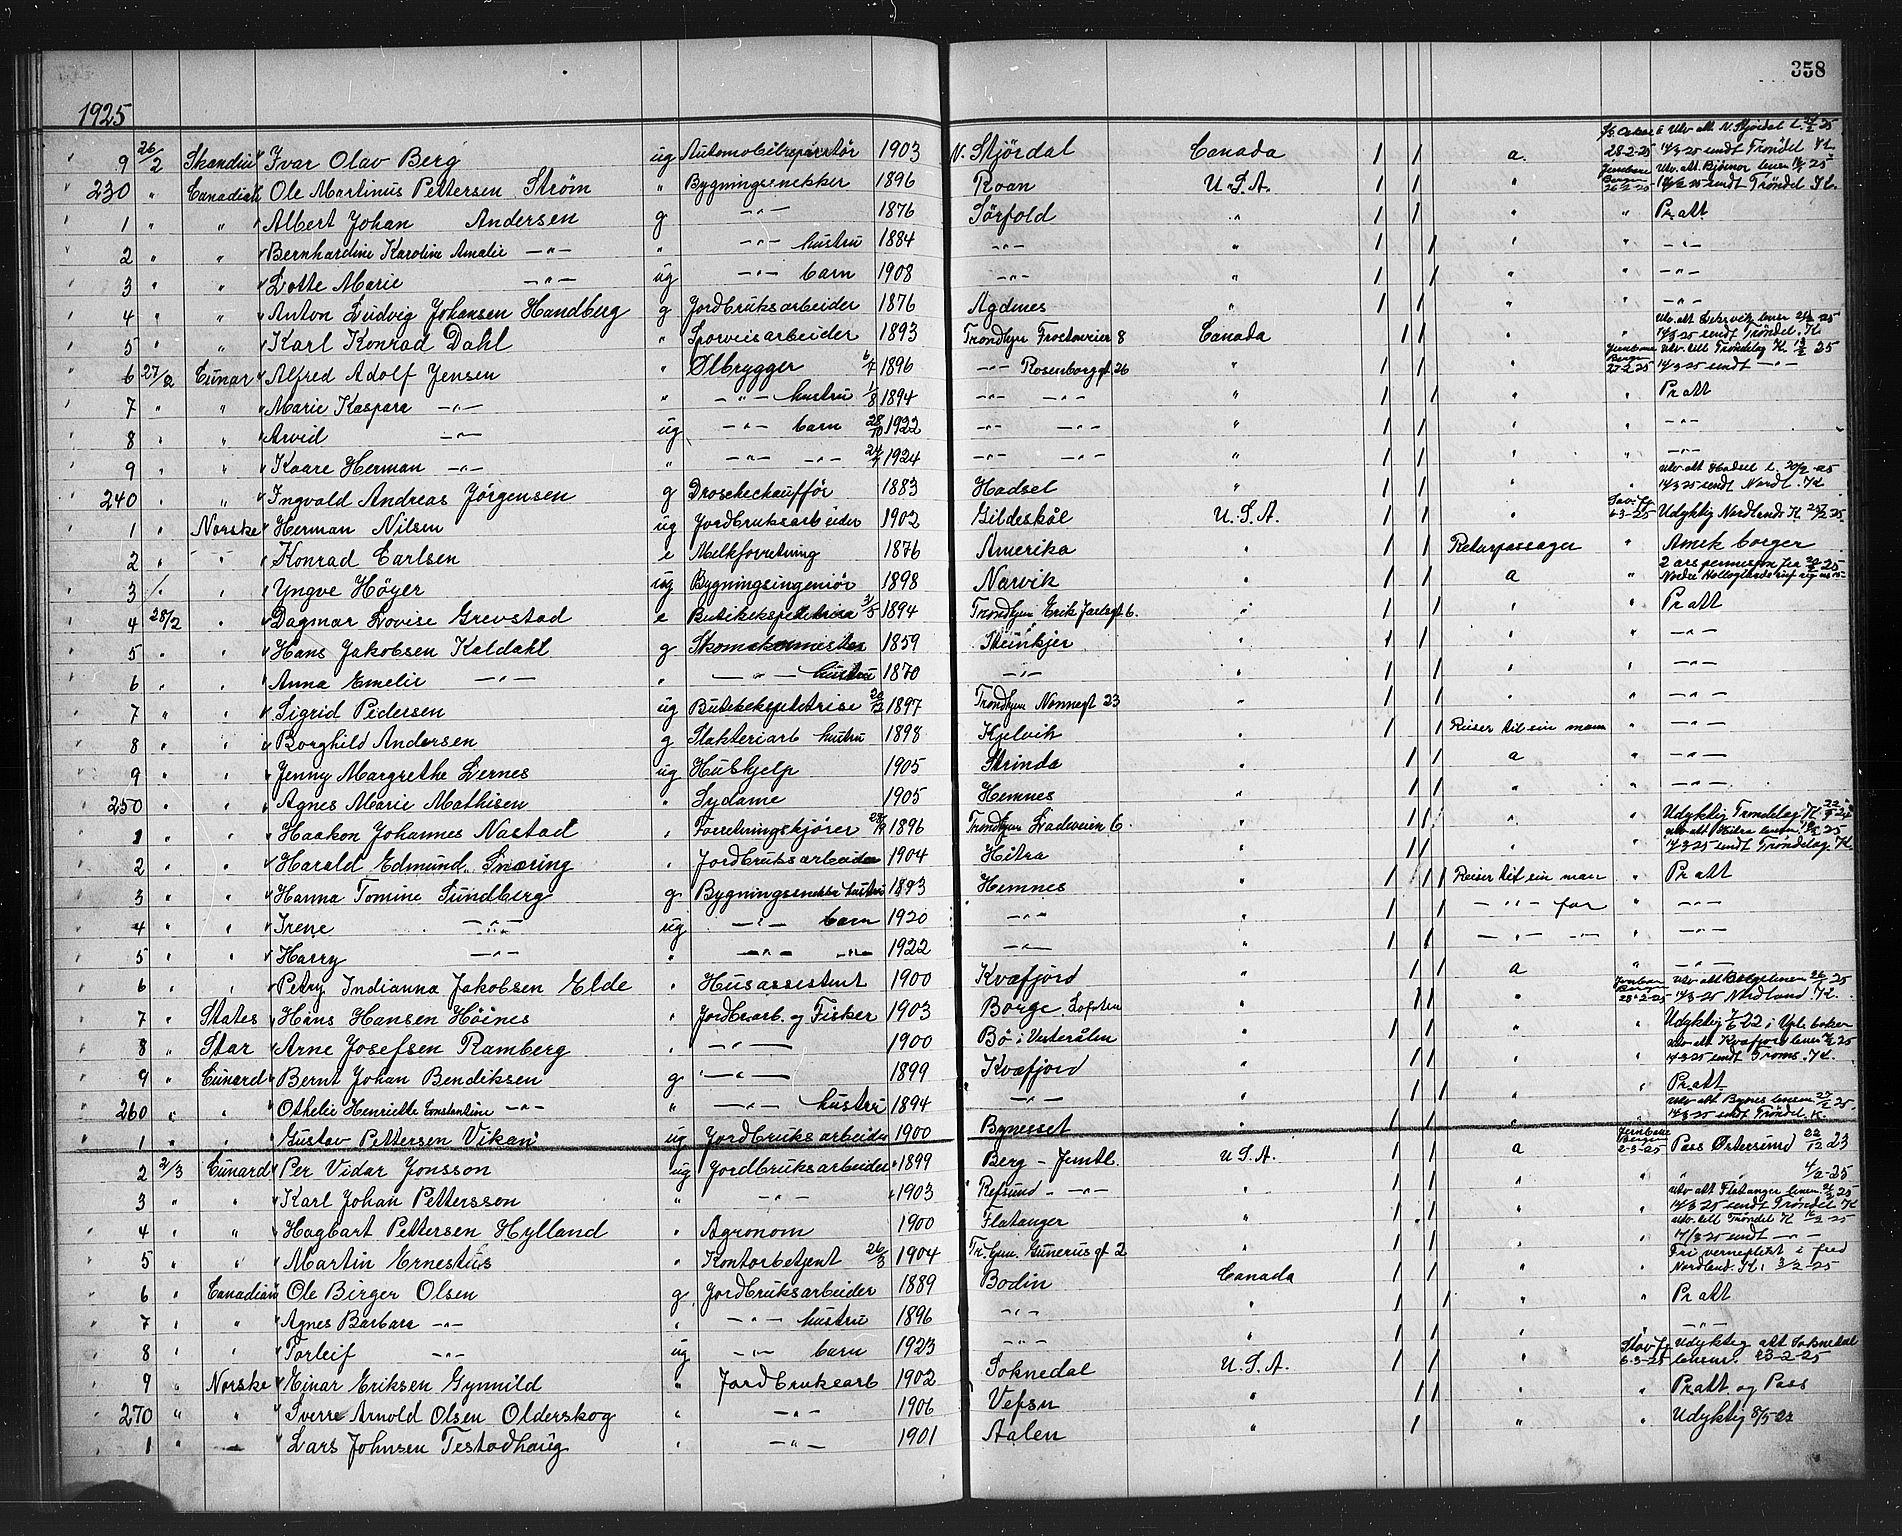 358
1925
9 26/2 Skandin " Ivar Olav Berg ug Automobilreparatør 1903 N. Stjørdal Canada 1 1 a. 28-2-25 14/3 25 sendt Trøndel K.
230 " Canadian " Ole Martinus Pettersen Strøm " Bygningssnekker 1896 Roan U.S.A. 1 1 " 14/3 25 sendt Trøndel K.
1 " " " Albert Johan Andersen g —"— 1876 Sørfold " 1 1 " " Pr att
2 " " " Bernhardine Karoline Amalie —"— " —"— hustru 1884 —"— " 1 1 " " —"—
3 " " " Lotte Marie —"— ug —"— barn 1908 —"— " 1 1 " " —"—
4 " " " Anton Ludvig Johansen Handberg g Jordbruksarbeider 1876 Agdenes " 1 1 " —"—
5 " " " Karl Konrad Dahl " Sporveisarbeider 1893 Trondhjem Frostaveien 8 Canada 1 1 " " 14/3 25 sendt Trøndel. K
6 27/2 Cunar " Alfred Adolf Jensen " Ølbrygger 6/7 1896 —"— Rosenborggt 26 " 1 1 " 27-2-25 14/3 25 sendt —"—
7 " " " Marie Kaspara —"— " —"— hustru 1/8 1894 —"— —"— " 1 1 " " Pr att
8 " " " Arvid —"— ug —"— barn 28/10 1922 —"— —"— " 1 1 " " —"—
9 " " " Kaare Herman —"— " —"— —"— 1924 —"— —"— " 1 1 " " —"—
240 " " " Ingvald Andreas Jørgensen g Droschechauffør 1883 Hadsel " 1 1 " " 14/3 25 sendt Nordl. K
1 " Norske " Herman Nilsen ug Jordbruksarbeider 1902 Gildeskål U.S.A. 1 1 " 6-3-25 Udyktig Nordlands K.
2 " " " Konrad Carlsen e Melkforretning 1876 Amerika " 1 1 Returpassager " Amrk borger
3 " " " Yngve Høyer ug Bygningsingeniør 1898 Narvik " 1 1 a "
4 28/2 " " Dagmar Lovise Grevstad e Butikekspeditrise 1894 Trondhjem Erik Jarlsgt 6. " 1 1 " " Pr att
5 " " " Hans Jakobsen Kaldahl g Skomakermester 1859 Steinkjer " 1 1 " " —"—
6 " " " Anna Emelie —"— " —"— hustru 1870 —"— " 1 1 " " —"—
7 " " " Sigrid Pedersen ug Butikekspeditrise 1897 Trondhjem Nonnegt 23 " 1 1 " " —"—
8 " " " Borghild Andersen g Slakteriarb hustru 1898 Kjelvik " 1 1 Reiser til sin mann " —"—
9 " " " Jenny Margrethe Lernes ug Hushjelp 1905 Strinda " 1 1 a " —"—
250 " " " Agnes Marie Mathisen " Sydame 1905 Hemnes " 1 1 " " —"—
1 " " " Haakon Johannes Nastad " Forretningskjører 1896 Trondhjem Ladeveien 6. " 1 1 " Udyktig Trøndelag K.
2 " " " Harald Edmund Snæring " Jordbruksarbeider 1904 Hitra " 1 1 " 14/3 25 sendt Trøndelag K.
3 " " " Hanna Tomine Sundberg g Bygningssnekker hustru 1893 Hemnes " 1 1 1 Reiser til sin man " Pr att
4 " " " Irene —"— ug —"— barn 1920 —"— " 1 1 —"— far " —"—
5 " " " Harry —"— " —"— —"— 1922 —"— " 1 1 —"— —"— " —"—
6 " " " Petry Indianna Jakobsen Elde " Husassistent 1900 Kvæfjord " 1 1 a " —"—
7 " States " Hans Hansen Høines " Jordbrarb. og Fisker 1903 Borge Lofoten " 1 1 " 28-2-25 14/3 25 Nordland K.
8 " Star " Arne Josefsen Ramberg " —"— 1900 Bø i Vesterålen " 1 1 " " Udyktig
9 " Cunard " Bernt Johan Bendiksen g —"— 1899 Kvæfjord " 1 1 " " 14-3-25 sendt Troms. K.
260 " " " Othelie Henriette Constantine —"— " —"— hustru 1894 —"— " 1 1 " " Pr att
1 " " " Gustav Pettersen Vikan ug Jordbruksarbeider 1900 Byneset " 1 1 " " 14/3 25 sendt Trøndel. K.
2 2/3 Cunard " Per Vidar Jonsson ug Jordbruksarbeider 1899 Berg - Jemtl. U.S.A. 1 1 a 2-3-25 Pass Østersund 22/12 23
3 " " " Karl Johan Pettersson " —"— 1903 Refsund - —"— " 1 1 " " " 4/2-25
4 " " " Hagbart Pettersen Hylland " Agronom 1900 Flatanger " 1 1 " " 14/3 25 sendt Trøndel K
5 " " " Martin Ernestus " Kontorbetjent 26/3 1904 Tr.hjem. Gunerus gt 2 " 1 1 " 17/3 25 sendt —"—
6 " Canadian " Ole Birger Olsen g Jordbruksarbeider 1889 Bodin Canada 1 1 " " Nordland. K. 3/2-25
7 " " " Agnes Barbara —"— " —"— hustru 1896 —"— " 1 1 " " Pr att
8 " " " Torleif —"— ug —"— barn 1923 —"— " 1 1 " " —"—
9 " Norske " Einar Eriksen Gynnild " Jordbrukearb 1902 Soknedal U.S.A. 1 1 " 6-3-25 Udyktig att Soknedal lensm. 23-2-25
270 " " " Sverre Arnold Olsen Olderskog " —"— 1906 Vefsn " 1 1 " Pr att og Pass
1 " " " Lars Johnsen Testadhaug " —"— 1901 Aalen " 1 " " Udyktig 8/5-23